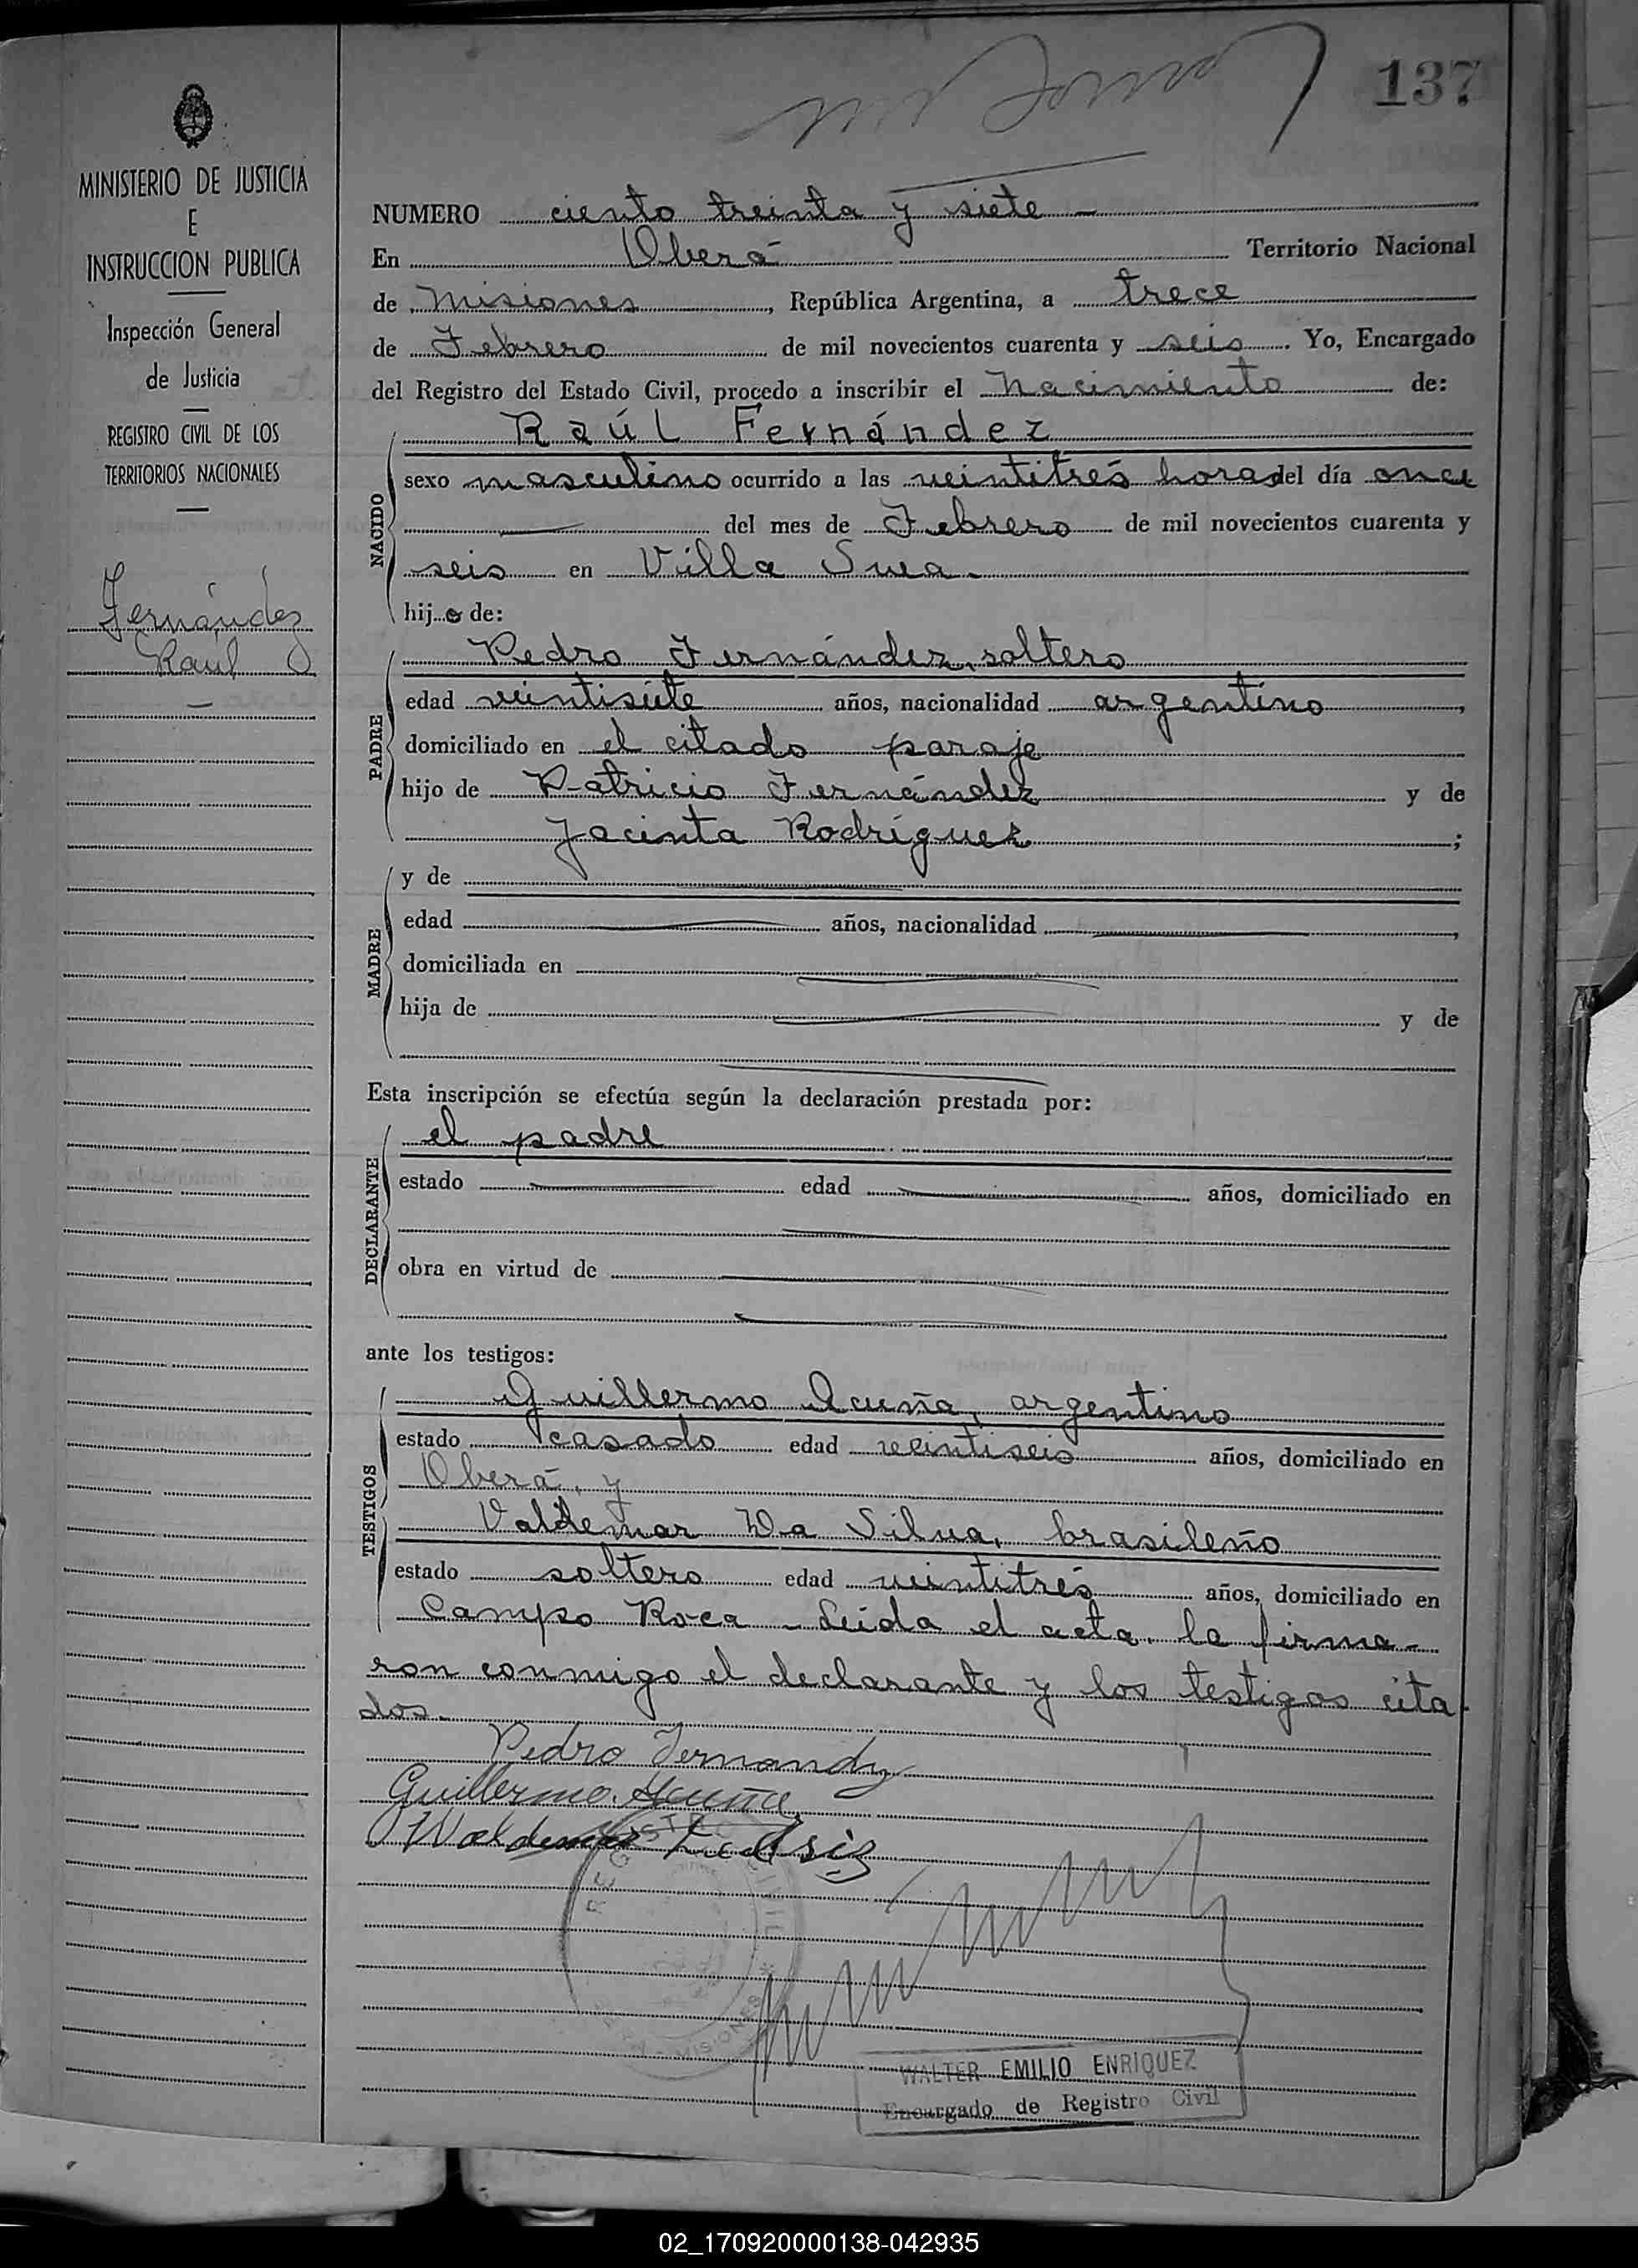 137
MINISTERIO DE JUSTICIA
E
INSTRUCCION PUBLICA
Inspección General
de Justicia
REGISTRO CIVIL DE LOS
TERRITORIOS NACIONALES
Fernández
Raúl
NUMERO ciento treinta y siete -
En Oberá Territorio Nacional
de Misiones, República Argentina, a trece
de Febrero de mil novecientos cuarenta y seis. Yo, Encargado
del Registro del Estado Civil, procedo a inscribir el nacimiento de:
NACIDO
Raúl Fernández
sexo masculino ocurrido a las veintitrés horas del día once
del mes de Febrero de mil novecientos cuarenta y
seis en Villa Svea.
hijo de:
PADRE
Pedro Fernández, soltero
edad veintisiete años, nacionalidad argentino,
domiciliado en el citado paraje
hijo de Patricio Fernández y de
Jacinta Rodríguez;
MADRE
y de
edad años, nacionalidad,
domiciliada en
hija de y de
Esta inscripción se efectúa según la declaración prestada por:
DECLARANTE
el padre
estado edad años, domiciliado en
obra en virtud de
ante los testigos:
TESTIGOS
Guillermo Acuña, argentino
estado casado edad veintiseis años, domiciliado en
Oberá, y
Valdemar Da Silva, brasileño
estado soltero edad veintitrés años, domiciliado en
Campo Roca - Leida el acta, la firma-
ron conmigo el declarante y los testigos cita-
dos.
Pedro Fernandez
Guillermo Acuña
Waldemar
MISIONES
WALTER EMILIO ENRIQUEZ
Encargado de Registro Civil
02_170920000138-042935